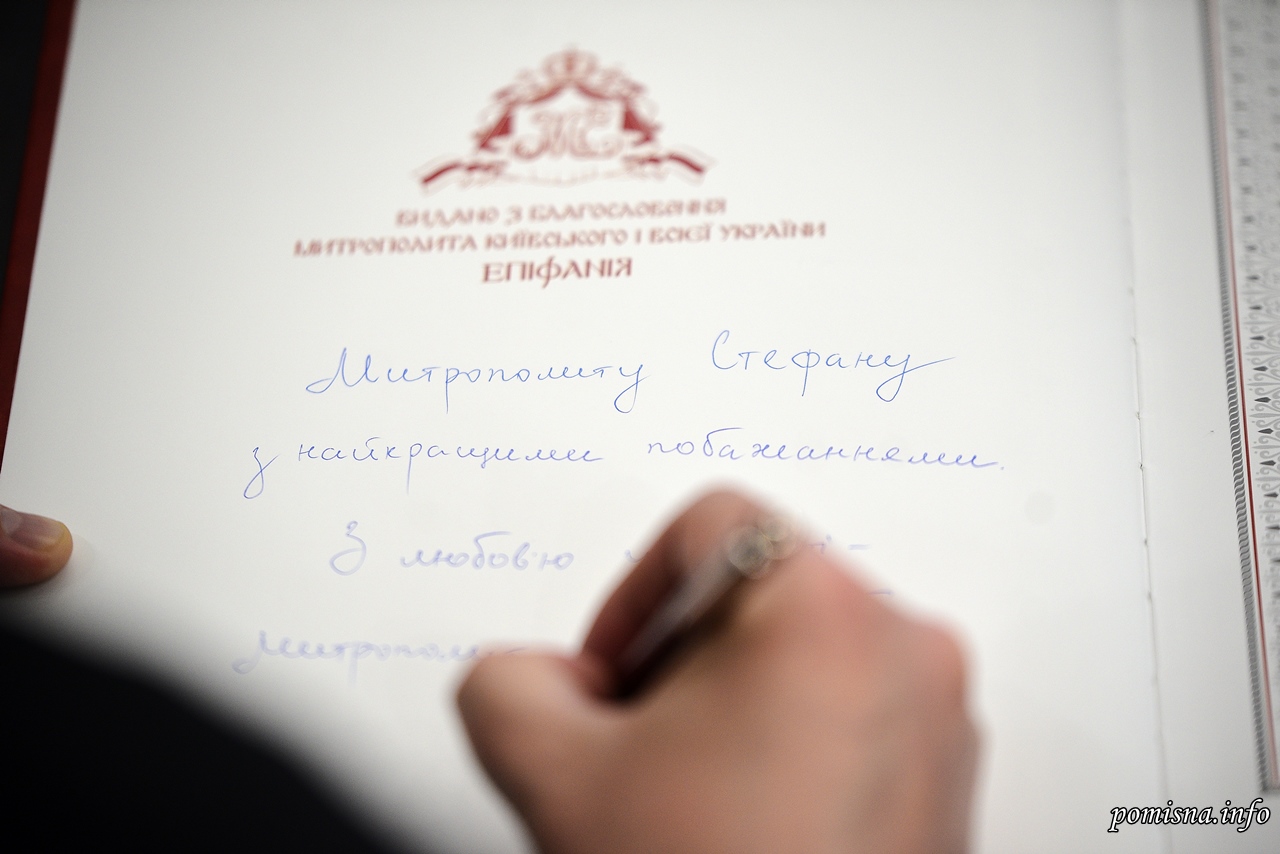 ВИДАНО З БЛАГОСЛОВЕННЯ
МИТРОПОЛИТА КИЇВСЬКОГО І ВСІЄЇ УКРАЇНИ
ЕПІФАНІЯ
Митрополиту Стефану
з найкращими побажаннями.
З любов'ю
pomisna.info